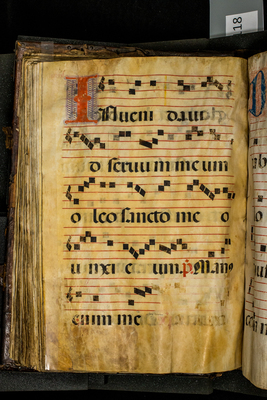 118
Inueni dauid
d seruum meum
o leo sancto me o
unxi eum. ℣ Man
enim me